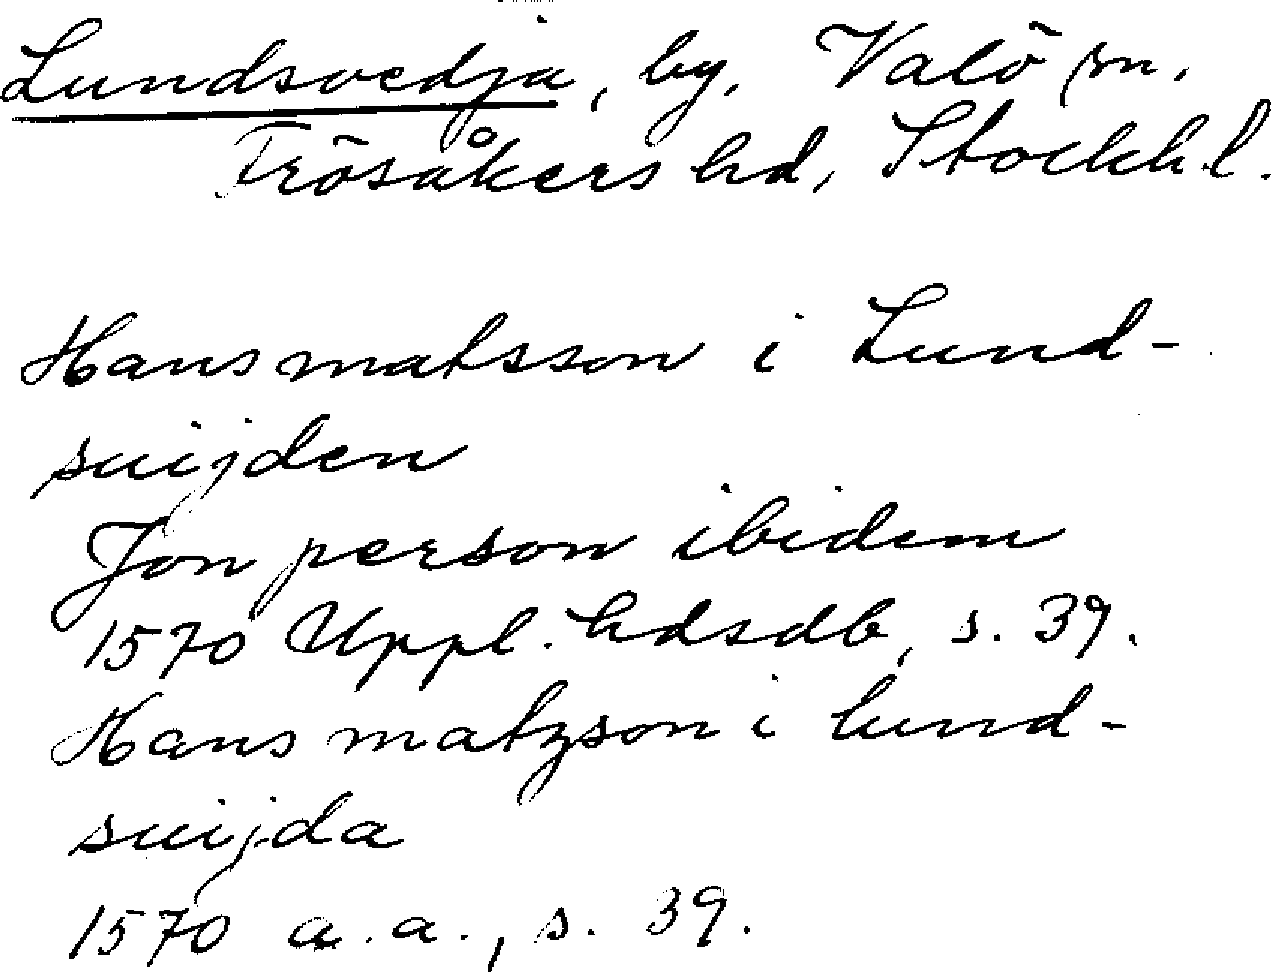 Lundsvedja, by, Valö sn.
Frösåkers hd, Stockh. l.
Hans matsson i Lund-
suijden
Jon person ibidem
1570 Uppl. hdsdb, s. 39.
Hans matzson i lund-
suijda
1570 a. a., s. 39.